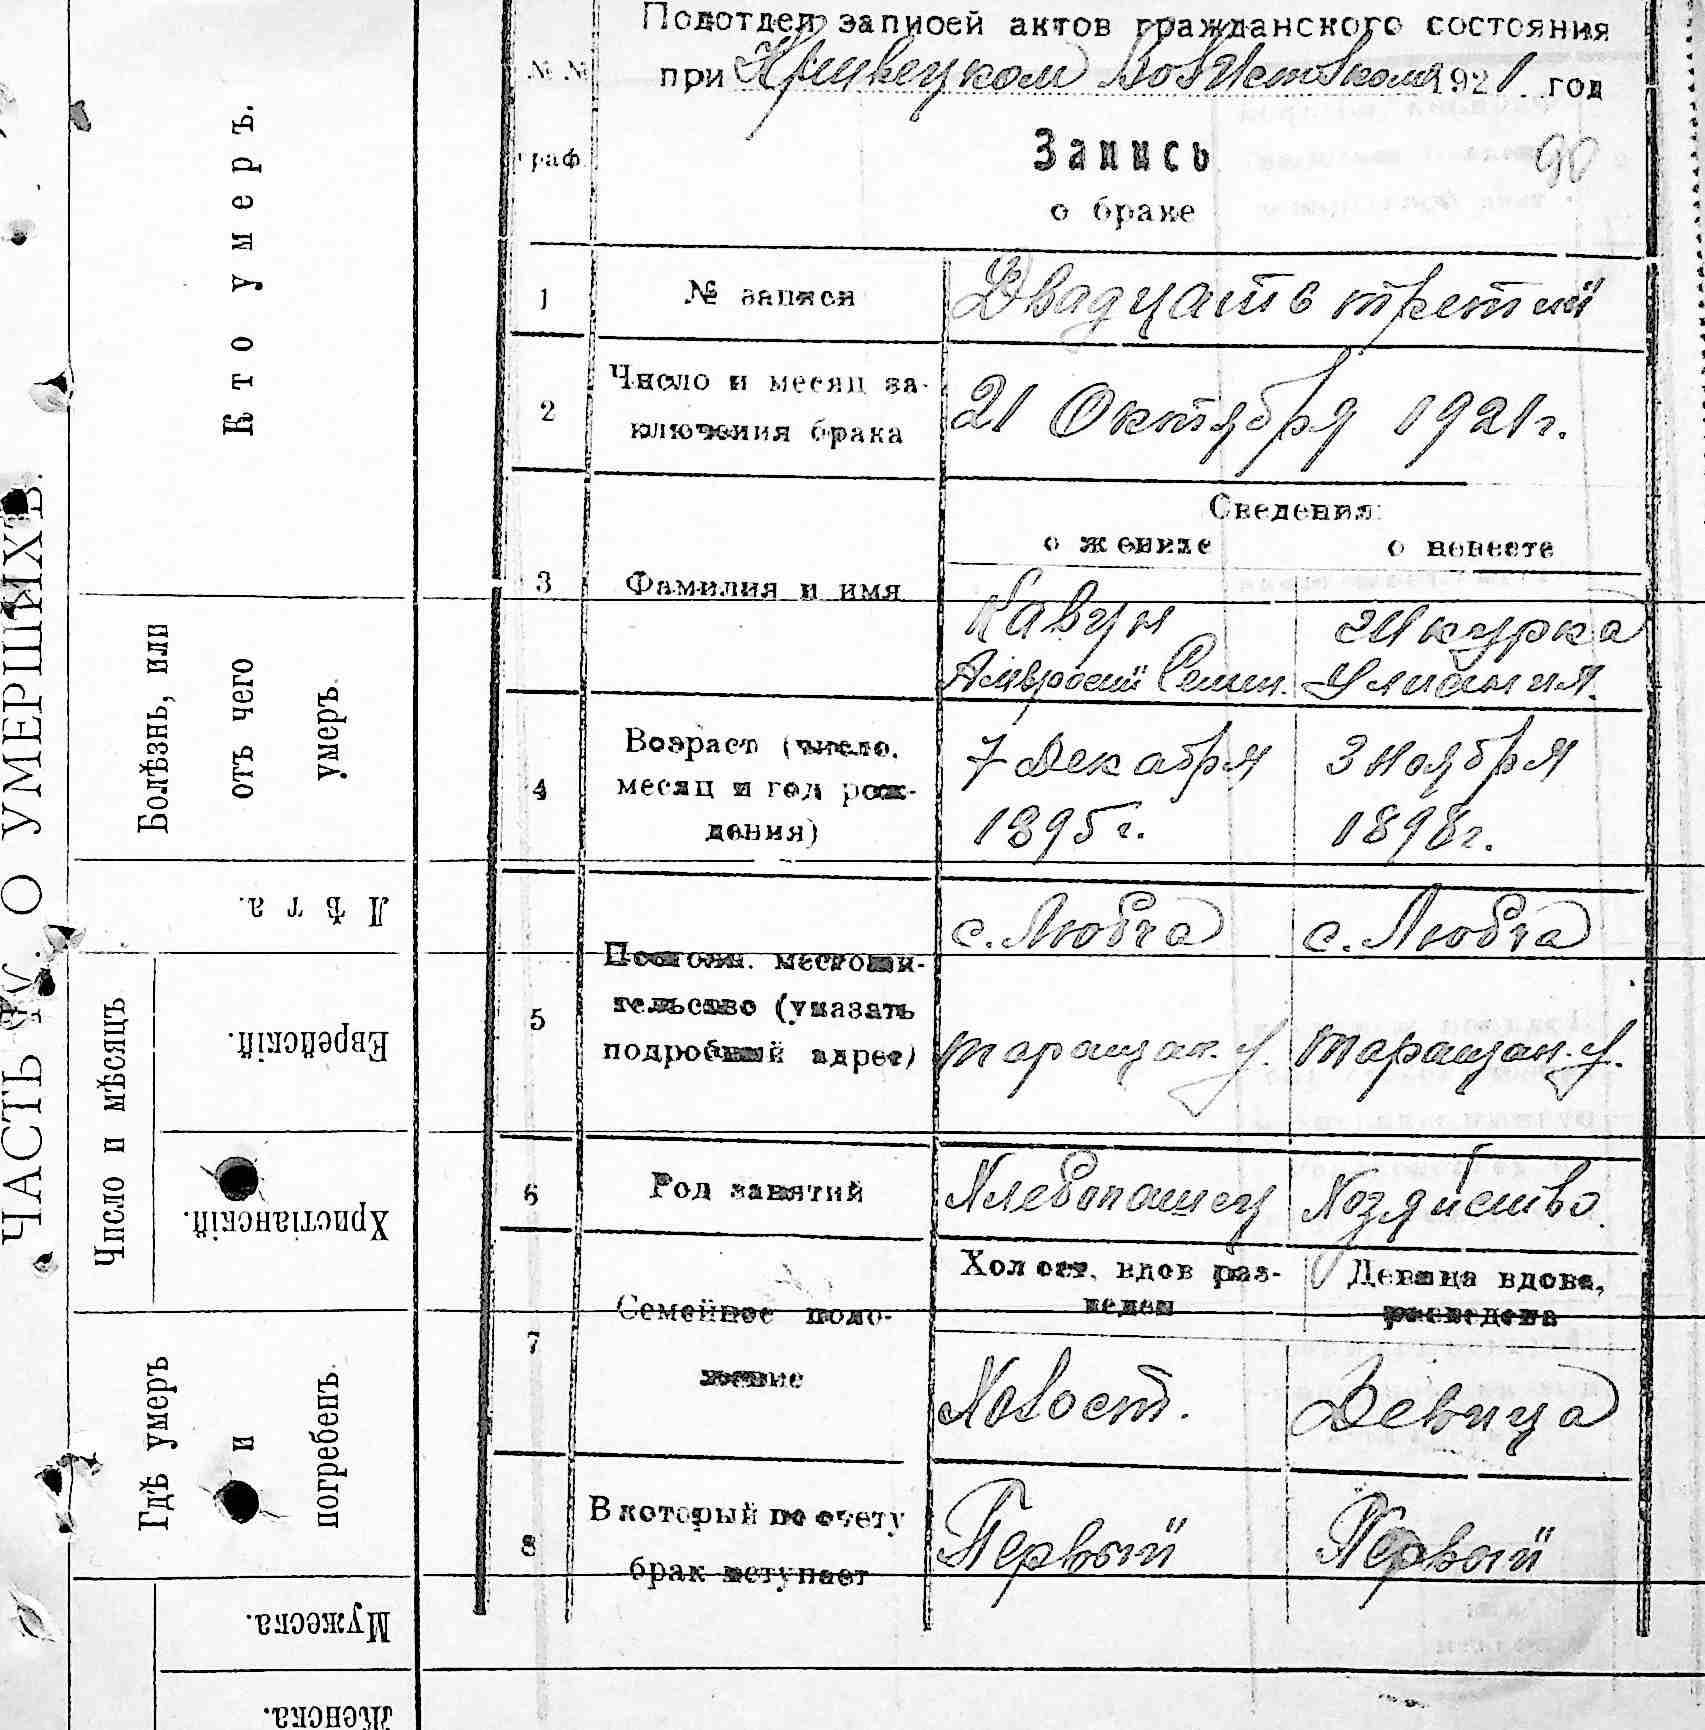 Подотдел записей актов гражданского состояния
при Кривецком 1921 год
№ №
граф.
Запись
о браке
90
1 № записи Двадцать третий
2 Число и месяц за-
ключения брака 21 Октября 1921 г.
Сведения:
о женихе о невесте
3 Фамилия и имя
Кавун Шкурка
Амвросий Семен. Улиания.
4 Возраст (число,
месяц и год рож-
дения)
7 Декабря 3 Ноября
1895 г. 1898 г.
5 Постоян. местожи-
тельство (указать
подробный адрес)
с. Любча с. Любча
таращан. у. таращан. у.
6 Род занятий Хлебопашец Хозяйство.
7 Семейное поло-
жение
Холост, вдов раз- Девица вдова,
веден разведена
Холост. Девица
8 В который по счету
брак вступает
Первый Первый
ЧАСТЬ IV. О УМЕРШИХЪ.
Кто умеръ.
Болѣзнь, или
отъ чего
умеръ.
Лѣта.
Число и мѣсяцъ
Еврейскій.
Христіанскій.
Гдѣ умеръ
и
погребенъ.
Мужеска.
Женска.